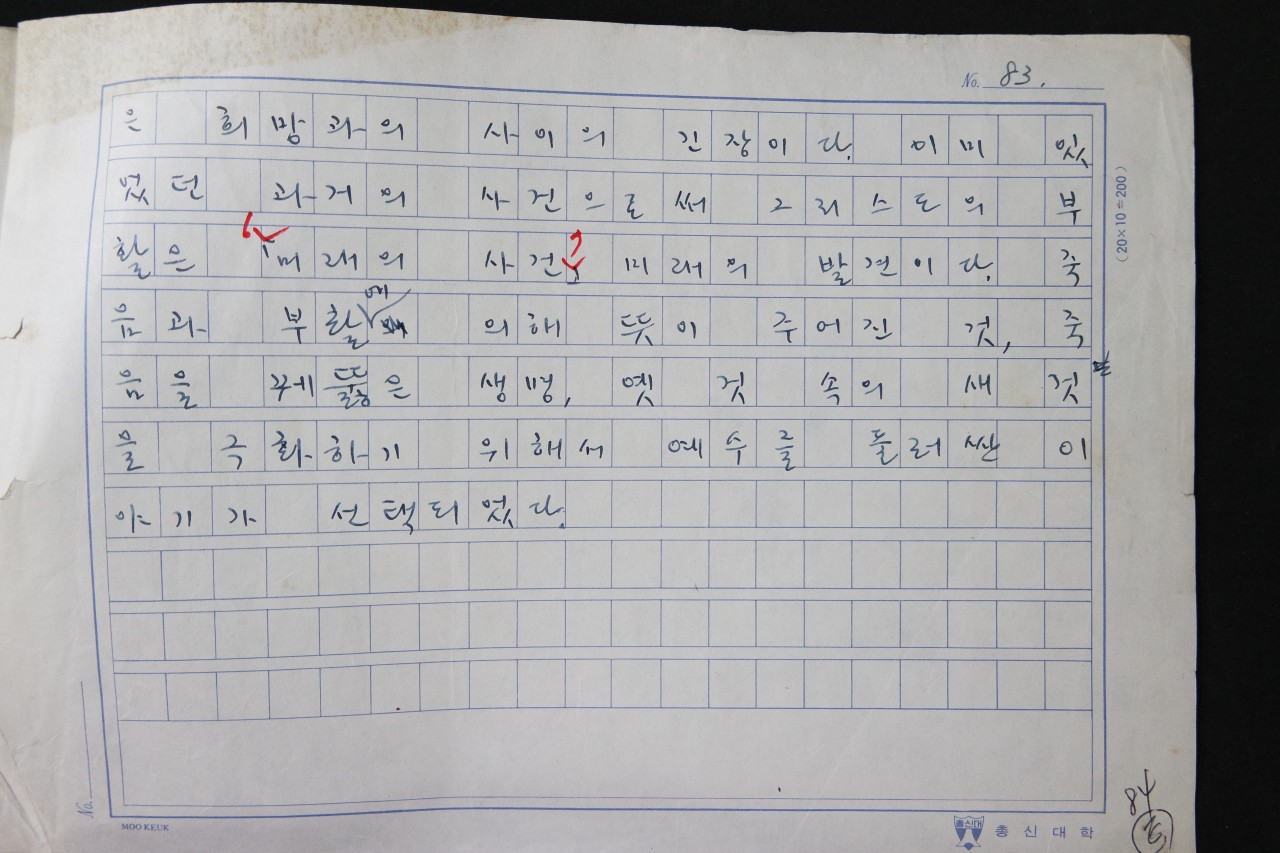 No. 83.
은 희망과의 사이의 긴장이다. 이미 있
었던 과거의 사건으로써 그리스도의 부
활은 '미래의 사건' 미래의 발견이다. 죽
음과 부활에 의해 뜻이 주어진 것, 죽
음을 꿰뚫은 생명, 옛 것 속의 새 것
을 극화하기 위해서 예수를 둘러싼 이
야기가 선택되었다.
(20×10=200)
No.
MOO KEUK
총신대
총신대학
84